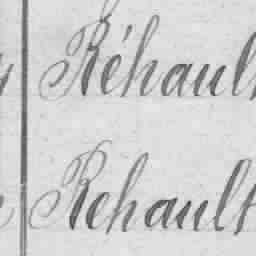 Réhault
Rehault